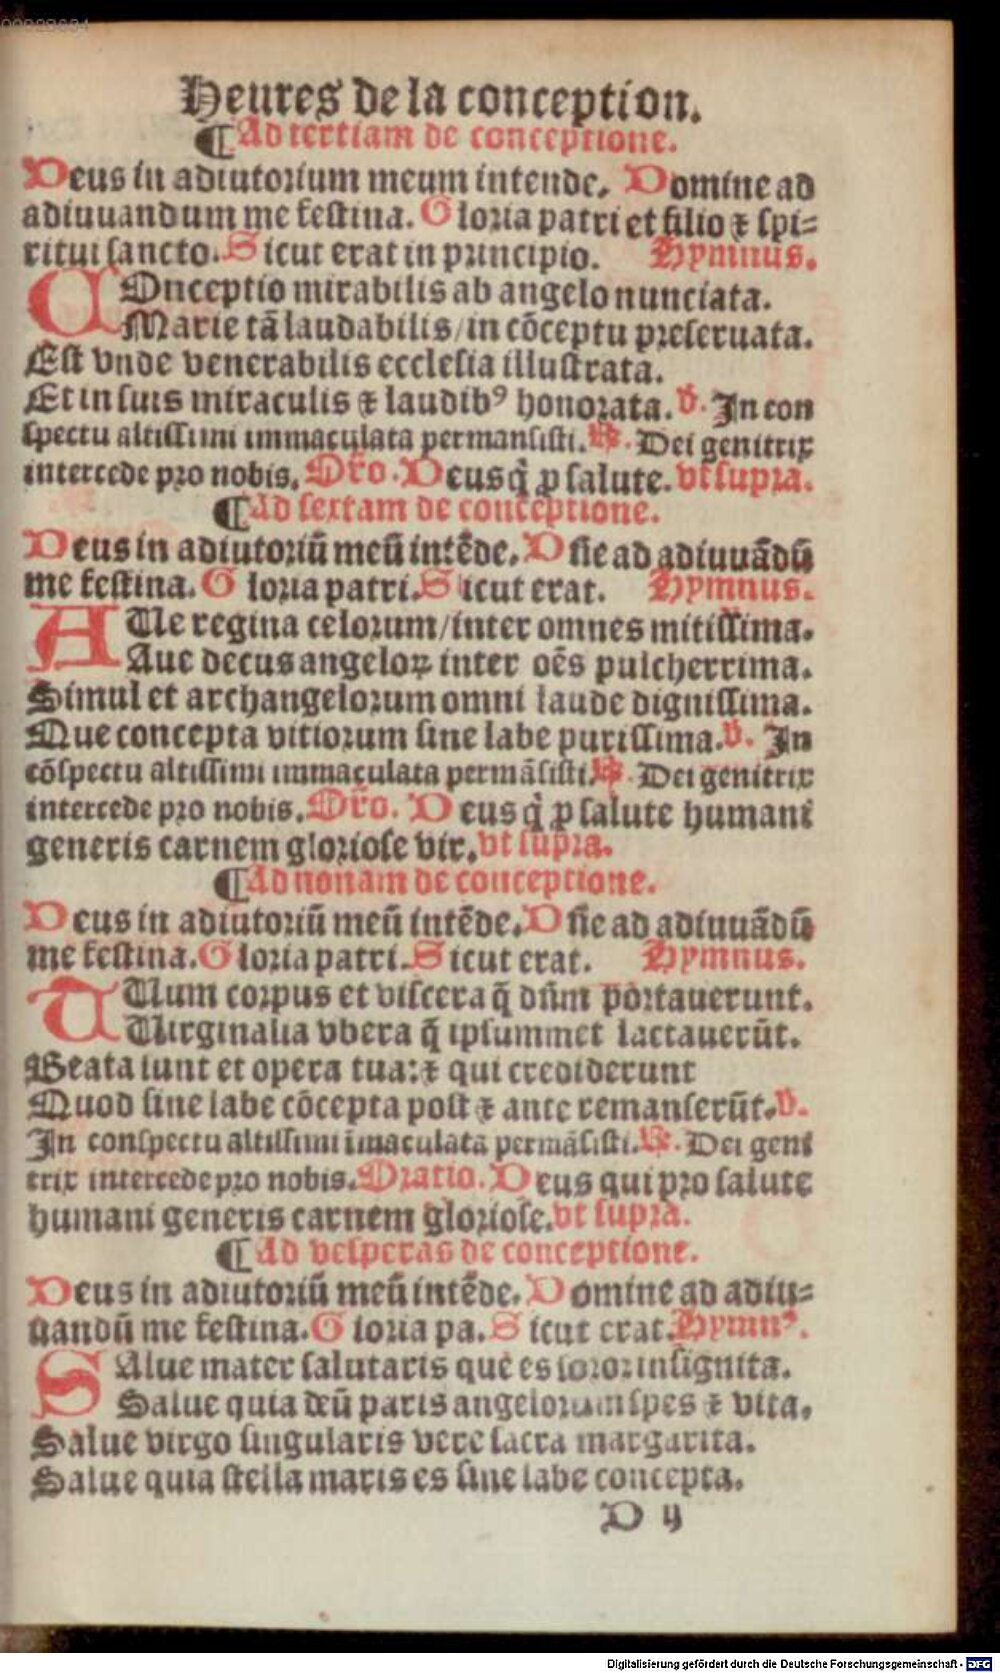 00028664
Heures de la conception.
¶Ad tertiam de conceptione.
Deus in adiutorium meum intende. Domine ad
adiuuandum me festina. Gloria patri et filio ⁊ spi=
ritui sancto. Sicut erat in principio. Hymnus.
COnceptio mirabilis ab angelo nunciata.
Marie tā laudabilis/in cōceptu preseruata.
Est vnde venerabilis ecclesia illustrata.
Et in suis miraculis ⁊ laudibꝰ honorata. v̄. In con
spectu altissimi immaculata permansisti. ℟. Dei genitrix
intercede pro nobis. Oro. Deus q̇ ꝓ salute. vt supra.
¶Ad sextam de conceptione.
Deus in adiutoriū meū intēde. Dn̄e ad adiuuādū
me festina. Gloria patri. Sicut erat. Hymnus.
AUe regina celorum/inter omnes mitissima.
Aue decus angeloꝝ inter oēs pulcherrima.
Simul et archangelorum omni laude dignissima.
Que concepta vitiorum sine labe purissima. v̄. In
cōspectu altissimi immaculata permāsisti. ℟. Dei genitrix
intercede pro nobis. Oro. Deus q̇ ꝓ salute humani
generis carnem gloriose vir. vt supra.
¶Ad nonam de conceptione.
Deus in adiutoriū meū intēde. Dn̄e ad adiuuādū
me festina. Gloria patri. Sicut erat. Hymnus.
TUum corpus et viscera q̄ dn̄m portauerunt.
Uirginalia vbera q̄ ipsummet lactauerūt.
Beata sunt et opera tua: ⁊ qui crediderunt
Quod sine labe cōcepta post ⁊ ante remanserūt. v̄.
In conspectu altissimi īmaculata permāsisti. ℟. Dei geni
trix intercede pro nobis. Oratio. Deus qui pro salute
humani generis carnem gloriose. vt supra.
¶Ad vesperas de conceptione.
Deus in adiutoriū meū intēde. Domine ad adiu=
uandū me festina. Gloria pa. Sicut erat. Hymnꝰ.
SAlue mater salutaris que es soror insignita.
Salue quia deū paris angelorum spes ⁊ vita.
Salue virgo singularis vere sacra margarita.
Salue quia stella maris es sine labe concepta.
D ij
Digitalisierung gefördert durch die Deutsche Forschungsgemeinschaft - DFG